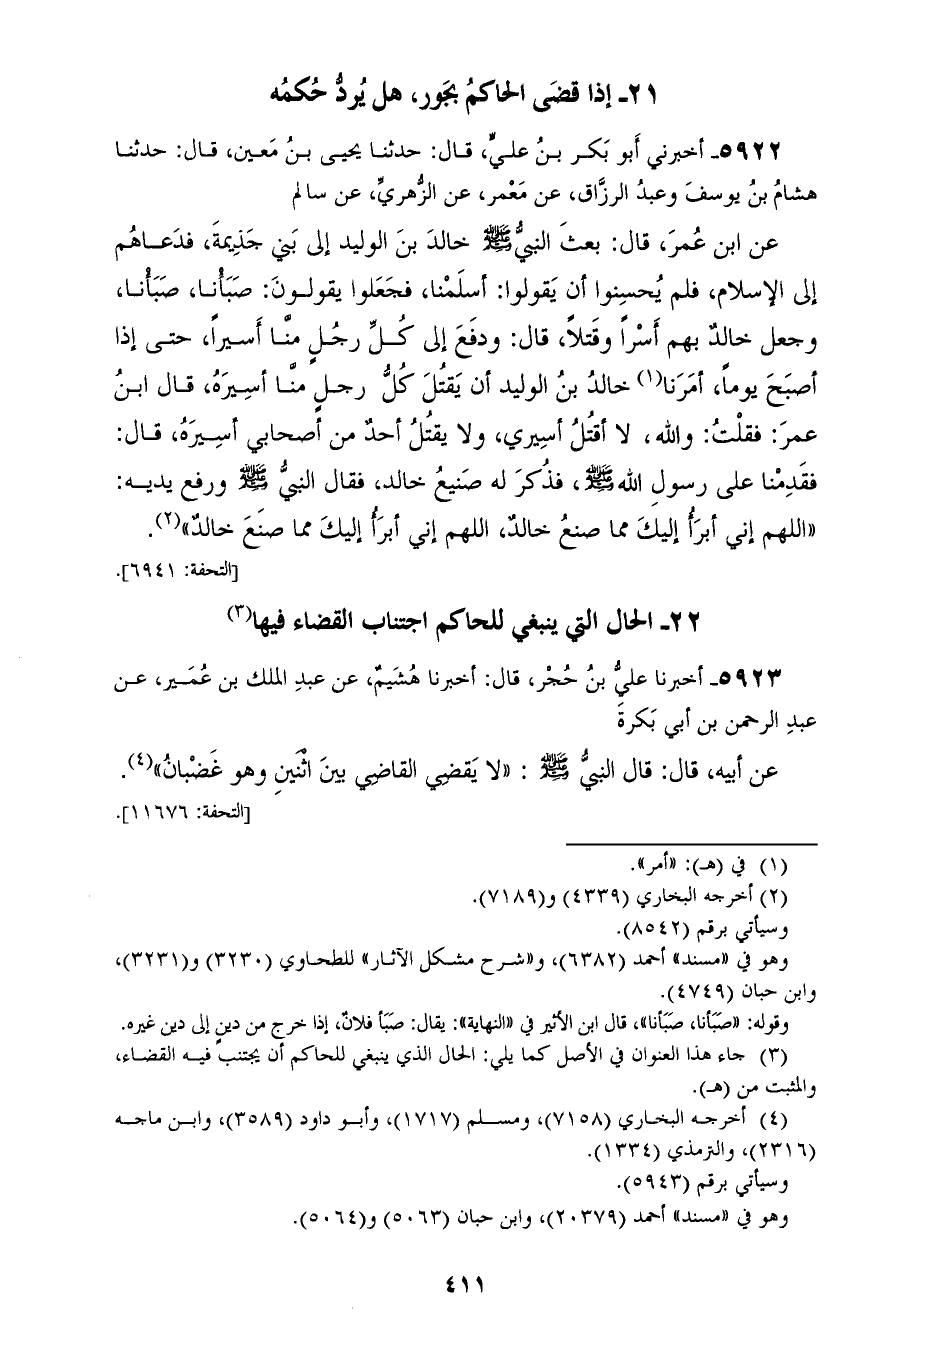 ٢١ـ إذا قضَى الحاكمُ بجَور، هل يُردُّ حُكمُه
٥٩٢٢ـ أخبرني أَبو بَكر بنُ عليٍّ، قال: حدثنا يحيى بنُ مَعين، قال: حدثنا
هشامُ بنُ يوسفَ وعبدُ الرزَّاق، عن مَعْمر، عن الزُّهريِّ، عن سالم
عن ابن عُمرَ، قال: بعثَ النبيُّ ﷺ خالدَ بنَ الوليد إلى بَني جَذِيمةَ، فدَعاهُم
إلى الإسلام، فلم يُحسِنوا أن يَقولوا: أسلَمْنا، فجَعَلوا يقولونَ: صَبَأْنا، صَبَأْنا،
وجعل خالدٌ بهم أَسْراً وقَتلاً، قال: ودفَعَ إلى كُلِّ رجُلٍ منَّا أَسيراً، حتى إذا
أصبَحَ يوماً، أمَرَنا(١) خالدُ بنُ الوليد أن يَقتُلَ كُلُّ رجلٍ منَّا أسيرَهُ، قال ابنُ
عمرَ: فقلْتُ: والله، لا أقتُلُ أسِيري، ولا يقتُلُ أحدٌ من أصحابي أسِيرَهُ، قال:
فقَدِمْنا على رسولِ الله ﷺ، فذُكرَ له صَنيعُ خالد، فقال النبيُّ ﷺ ورفع يديه:
«اللهم إني أبرَأُ إليكَ مما صنعُ خالدٌ، اللهم إني أبرَأُ إليكَ مما صنَعَ خالدٌ»(٢).
[التحفة: ٦٩٤١].
٢٢ـ الحال التي ينبغي للحاكم اجتناب القضاء فيها(٣)
٥٩٢٣ـ أخبرنا عليُّ بنُ حُجْر، قال: أخبرنا هُشَيمٌ، عن عبدِ الملك بن عُمَير، عن
عبدِ الرحمن بن أبي بَكرةَ
عن أبيه، قال: قال النبيُّ ﷺ : «لا يَقضِي القاضِي بينَ اثْنَينِ وهو غَضْبانُ»(٤).
[التحفة: ١١٦٧٦].
(١) في (هـ): «أمر».
(٢) أخرجه البخاري (٤٣٣٩) و(٧١٨٩).
وسيأتي برقم (٨٥٤٢).
وهو في «مسند» أحمد (٦٣٨٢)، و«شرح مشكل الآثار» للطحاوي (٣٢٣٠) و(٣٢٣١)،
وابن حبان (٤٧٤٩).
وقوله: «صَبَأنا، صَبَأنا»، قال ابن الأثير في «النهاية»: يقال: صَبَأ فلانٌ، إذا خرج من دينٍ إلى دين غيره.
(٣) جاء هذا العنوان في الأصل كما يلي: الحال الذي ينبغي للحاكم أن يجتنب فيه القضاء،
والمثبت من (هـ).
(٤) أخرجه البخاري (٧١٥٨)، ومسلم (١٧١٧)، وأبو داود (٣٥٨٩)، وابن ماجه
(٢٣١٦)، والترمذي (١٣٣٤).
وسيأتي برقم (٥٩٤٣).
وهو في «مسند» أحمد (٢٠٣٧٩)، وابن حبان (٥٠٦٣) و(٥٠٦٤).
٤١١